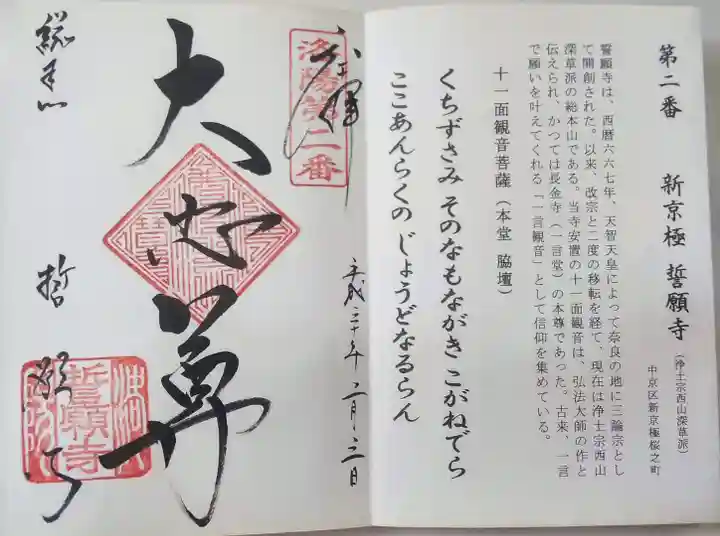 第二番 新京極 誓願寺(浄土宗西山深草派)
中京区新京極桜之町
誓願寺は、西暦六六七年、天智天皇によって奈良の地に三論宗とし
て開創された。以来、改宗と二度の移転を経て、現在は浄土宗西山
深草派の総本山である。当寺安置の十一面観音は、弘法大師の作と
伝えられ、かつては長金寺(一言堂)の本尊であった。古来、一言
で願いを叶えてくれる「一言観音」として信仰を集めている。
十一面観音菩薩(本堂 脇壇)
くちずさみ そのなもながき こがねでら
ここあんらくの じょうどなるらん
平成三十年二月三日
洛陽第二番
奉拝
大悲尊
総本山 誓願寺
誓願寺